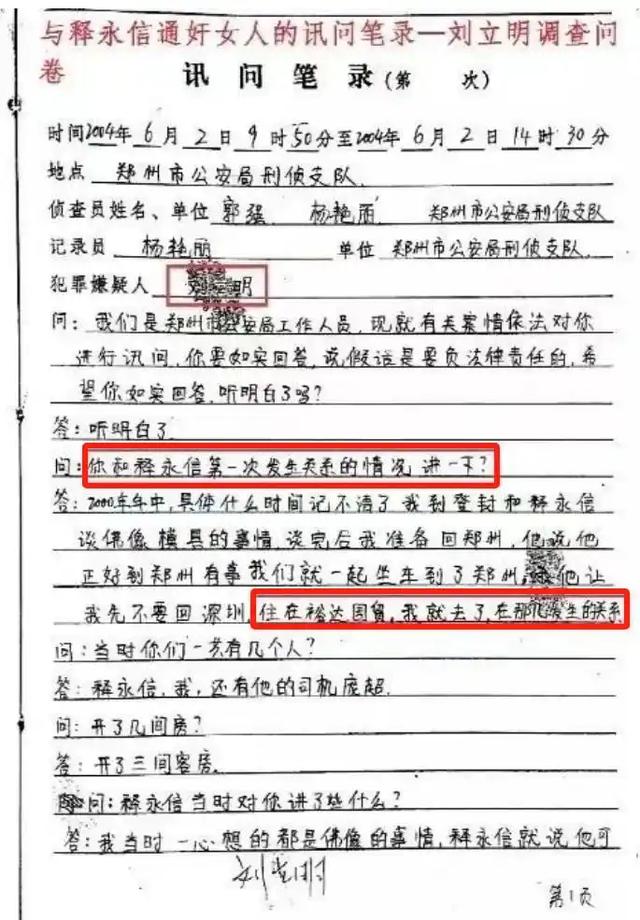 与释永信通奸女人的讯问笔录—刘立明调查问
卷
讯问笔录(第 次)
时间2004年6月2日9时50分至2004年6月2日14时30分
地点 郑州市公安局刑侦支队
侦查员姓名、单位 郭强 杨艳丽 郑州市公安局刑侦支队
记录员 杨艳丽 单位 郑州市公安局刑侦支队.
犯罪嫌疑人 明
问: 我们是郑州市公安局工作人员, 现就有关案情依法对你
进行讯问, 你要如实回答, 说假话是要负法律责任的, 希
望你如实回答, 听明白了吗?
答: 听明白了
问: 你和释永信第一次发生关系的情况讲一下?
答: 2000年年中, 具体什么时间记不清了 我到登封和释永信
谈佛像模具的事情, 谈完后我准备回郑州, 他说他
正好到郑州有事 我们就一起坐车到了郑州, 他让
我先不要回深圳, 住在裕达国贸, 我就去了, 在那发生的关系
问: 当时你们一共有几个人?
答: 释永信, 我, 还有他的司机庞超.
问: 开了几间房?
答: 开了三间客房.
问: 释永信当时对你讲了些什么?
答: 我当时一心想的都是佛像的事情, 释永信就说他可
第1页